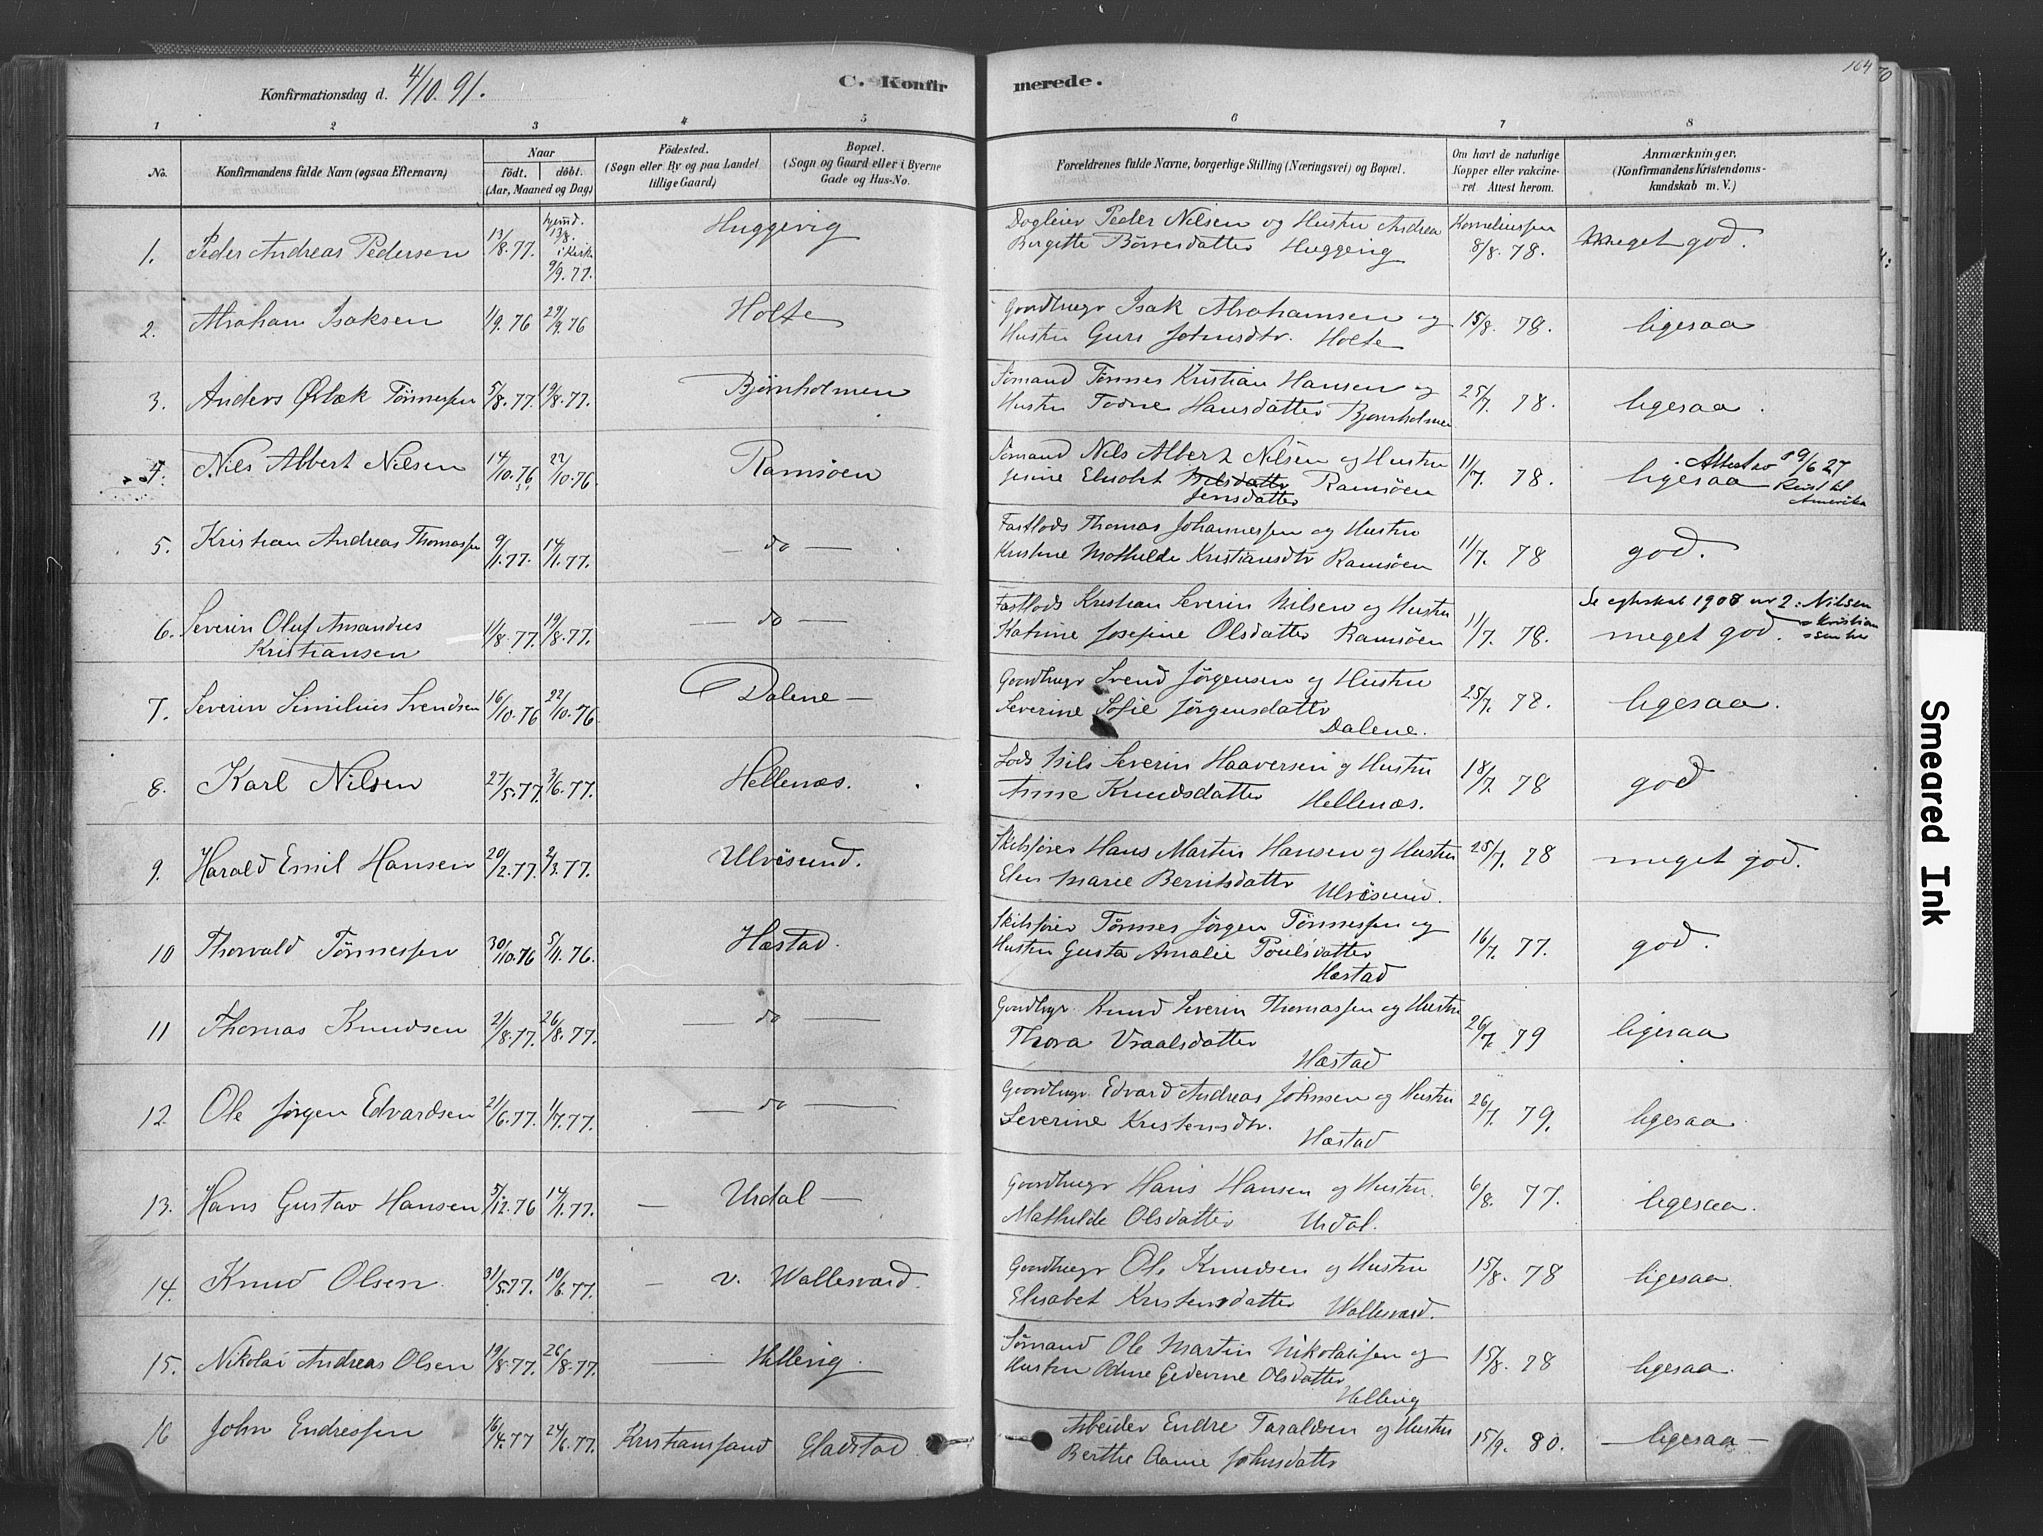 164
70
Konfirmationsdag d. 4/10. 91.
C. Konfir merede.
1 2 3 4 5 6 7 8
No.
Konfirmandens fulde Navn (ogsaa Efternavn)
Naar
født. døbt.
(Aar, Maaned og Dag)
Fødested.
(Sogn eller By og paa Landet
tillige Gaard)
Bopæl.
(Sogn og Gaard eller i Byerne
Gade og Hus-No.
Forældrenes fulde Navne, borgerlige Stilling (Næringsvei) og Bopæl.
Om havt de naturlige
Kopper eller vakcine-
ret Attest herom.
Anmærkninger.
(Konfirmandens Kristendoms-
kundskab m. V.)
1. Peder Andreas Pedersen 13/8.77. hjemd. 13/8. i Kirk. 9/9.77. Huggevig
Dagleier Peder Nilsen og Hustru Andrea
Bergitte Børresdatter Huggevig
Korneliussen 8/8. 78. Meget god.
2. Abraham Isaksen 1/9.76 29/9.76 Holte
Gaardbrugr Isak Abrahamsen og
Hustru Guri Johnsdtr. Holte
15/8. 78. ligesaa
3. Anders Ørbæk Tönnessen 5/8.77. 19/8.77. Bjørnholmen
Sömand Tønnes Kristian Hansen og
Hustru Todne Hansdatter Bjørnholmen
25/7. 78. ligesaa.
4. Nils Albert Nilsen 14/10.76 22/10.76 Ramsøen
Sömand Nils Albert Nilsen og Hustru
Jesine Elisabt Nilsdatter Ramsøen
Jensdatter
11/7. 78. ligesaa Attest 9/6 27
Reist til
Amerika
5. Kristian Andreas Thomassen 9/1.77. 14/1.77. — do —
Fastlods Thomas Johannessen og Hustru
Kristine Mathilde Kristiansdtr Ramsøen
11/7. 78 god.
6. Severin Oluf Amandus
Kristiansen 1/8.77. 19/8.77. — do —
Fastlods Kristian Severin Nilsen og Hustru
Katrine Josefine Olsdatter Ramsøen
11/7. 78. meget god.
Se egteskab 1908 nr 2: Nilsen
7. Severin Similius Svendsen 16/10.76 22/10.76 Dalene —
Gaardbrugr Svend Jørgensen og Hustru
Severine Sofie Jørgensdattr
Dalene.
25/7. 78. ligesaa.
8. Karl Nilsen 27/5.77. 3/6.77. Hellenæs.
Lods Nils Severin Haaversen og Hustru
Anne Knudsdatter Hellenæs.
18/7. 78 god
9. Harald Emil Hansen 20/2.77. 2/3.77. Ulvøsund.
Skibsfører Hans Martin Hansen og Hustru
Elen Marie Berntsdattr
Ulvøsund.
25/7. 78 meget god.
10 Thorvald Tönnessen 30/10.76 5/11.76. Hæstad.
Skibsfører Tønnes Jørgen Tønnessen og
Hustru Gusta Amalie Poulsdatter
Hæstad
16/7. 77. god.
11 Thomas Knudsen 21/8.77. 26/8.77. — do —
Gaardbrgr. Knud Severin Thomassen og Hustru
Thora Vraalsdatter
Hæstad
26/7. 79 ligesaa
12. Ole Jørgen Edvardsen 21/6.77. 1/7.77. — do —
Gaardbrugr. Edvard Andreas Johnsen og Hustru
Severine Kristensdtr.
Hæstad
26/7. 79. ligesaa.
13. Hans Gustav Hansen 5/12.76 14/1.77. — Urdal —
Gaardbrugr Hans Hansen og Hustru.
Mathilde Olsdatter Urdal.
6/8. 77. ligesaa.
14. Knud Olsen. 31/5.77. 10/6.77. — v. Wallesværd.
Gaardbrugr Ole Knudsen og Hustru
Elisabet Kristensdatter Wallesværd.
15/8. 78 ligesaa.
15. Nikolai Andreas Olsen 19/8.77. 26/8.77. — Hellevig.
Sømand Ole Martin Nikolaisen og
Hustru Anne Gedevine Olsdatter
Hellevig
15/8. 78 ligesaa.
16 John Endressen 16/4.77 24/6.77. Kristianssand Gladstad.
Arbeider Endre Taraldsen og Hustru
Berthe Aanne Johnsdattr
15/9. 80. — ligesaa —
Smeared Ink